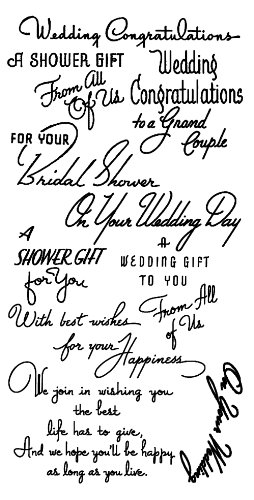 Wedding Congratulations
A SHOWER GIFT
From All
Of Us
Wedding
Congratulations
to a Grand
Couple
FOR YOUR
Bridal Shower
On Your Wedding Day
A
SHOWER GIFT
for You
A
WEDDING GIFT
TO YOU
With best wishes
for your
Happiness
From All
of Us
We join in wishing you
the best
life has to give,
And we hope you'll be happy
as long as you live.
On Your Wedding